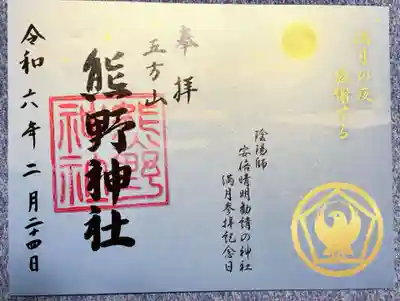 満月の夜
参拝する
奉拝
五方山
熊野神社
熊野
神社
令和六年二月二十四日
陰陽師
安倍晴明勧請の神社
満月参拝記念日